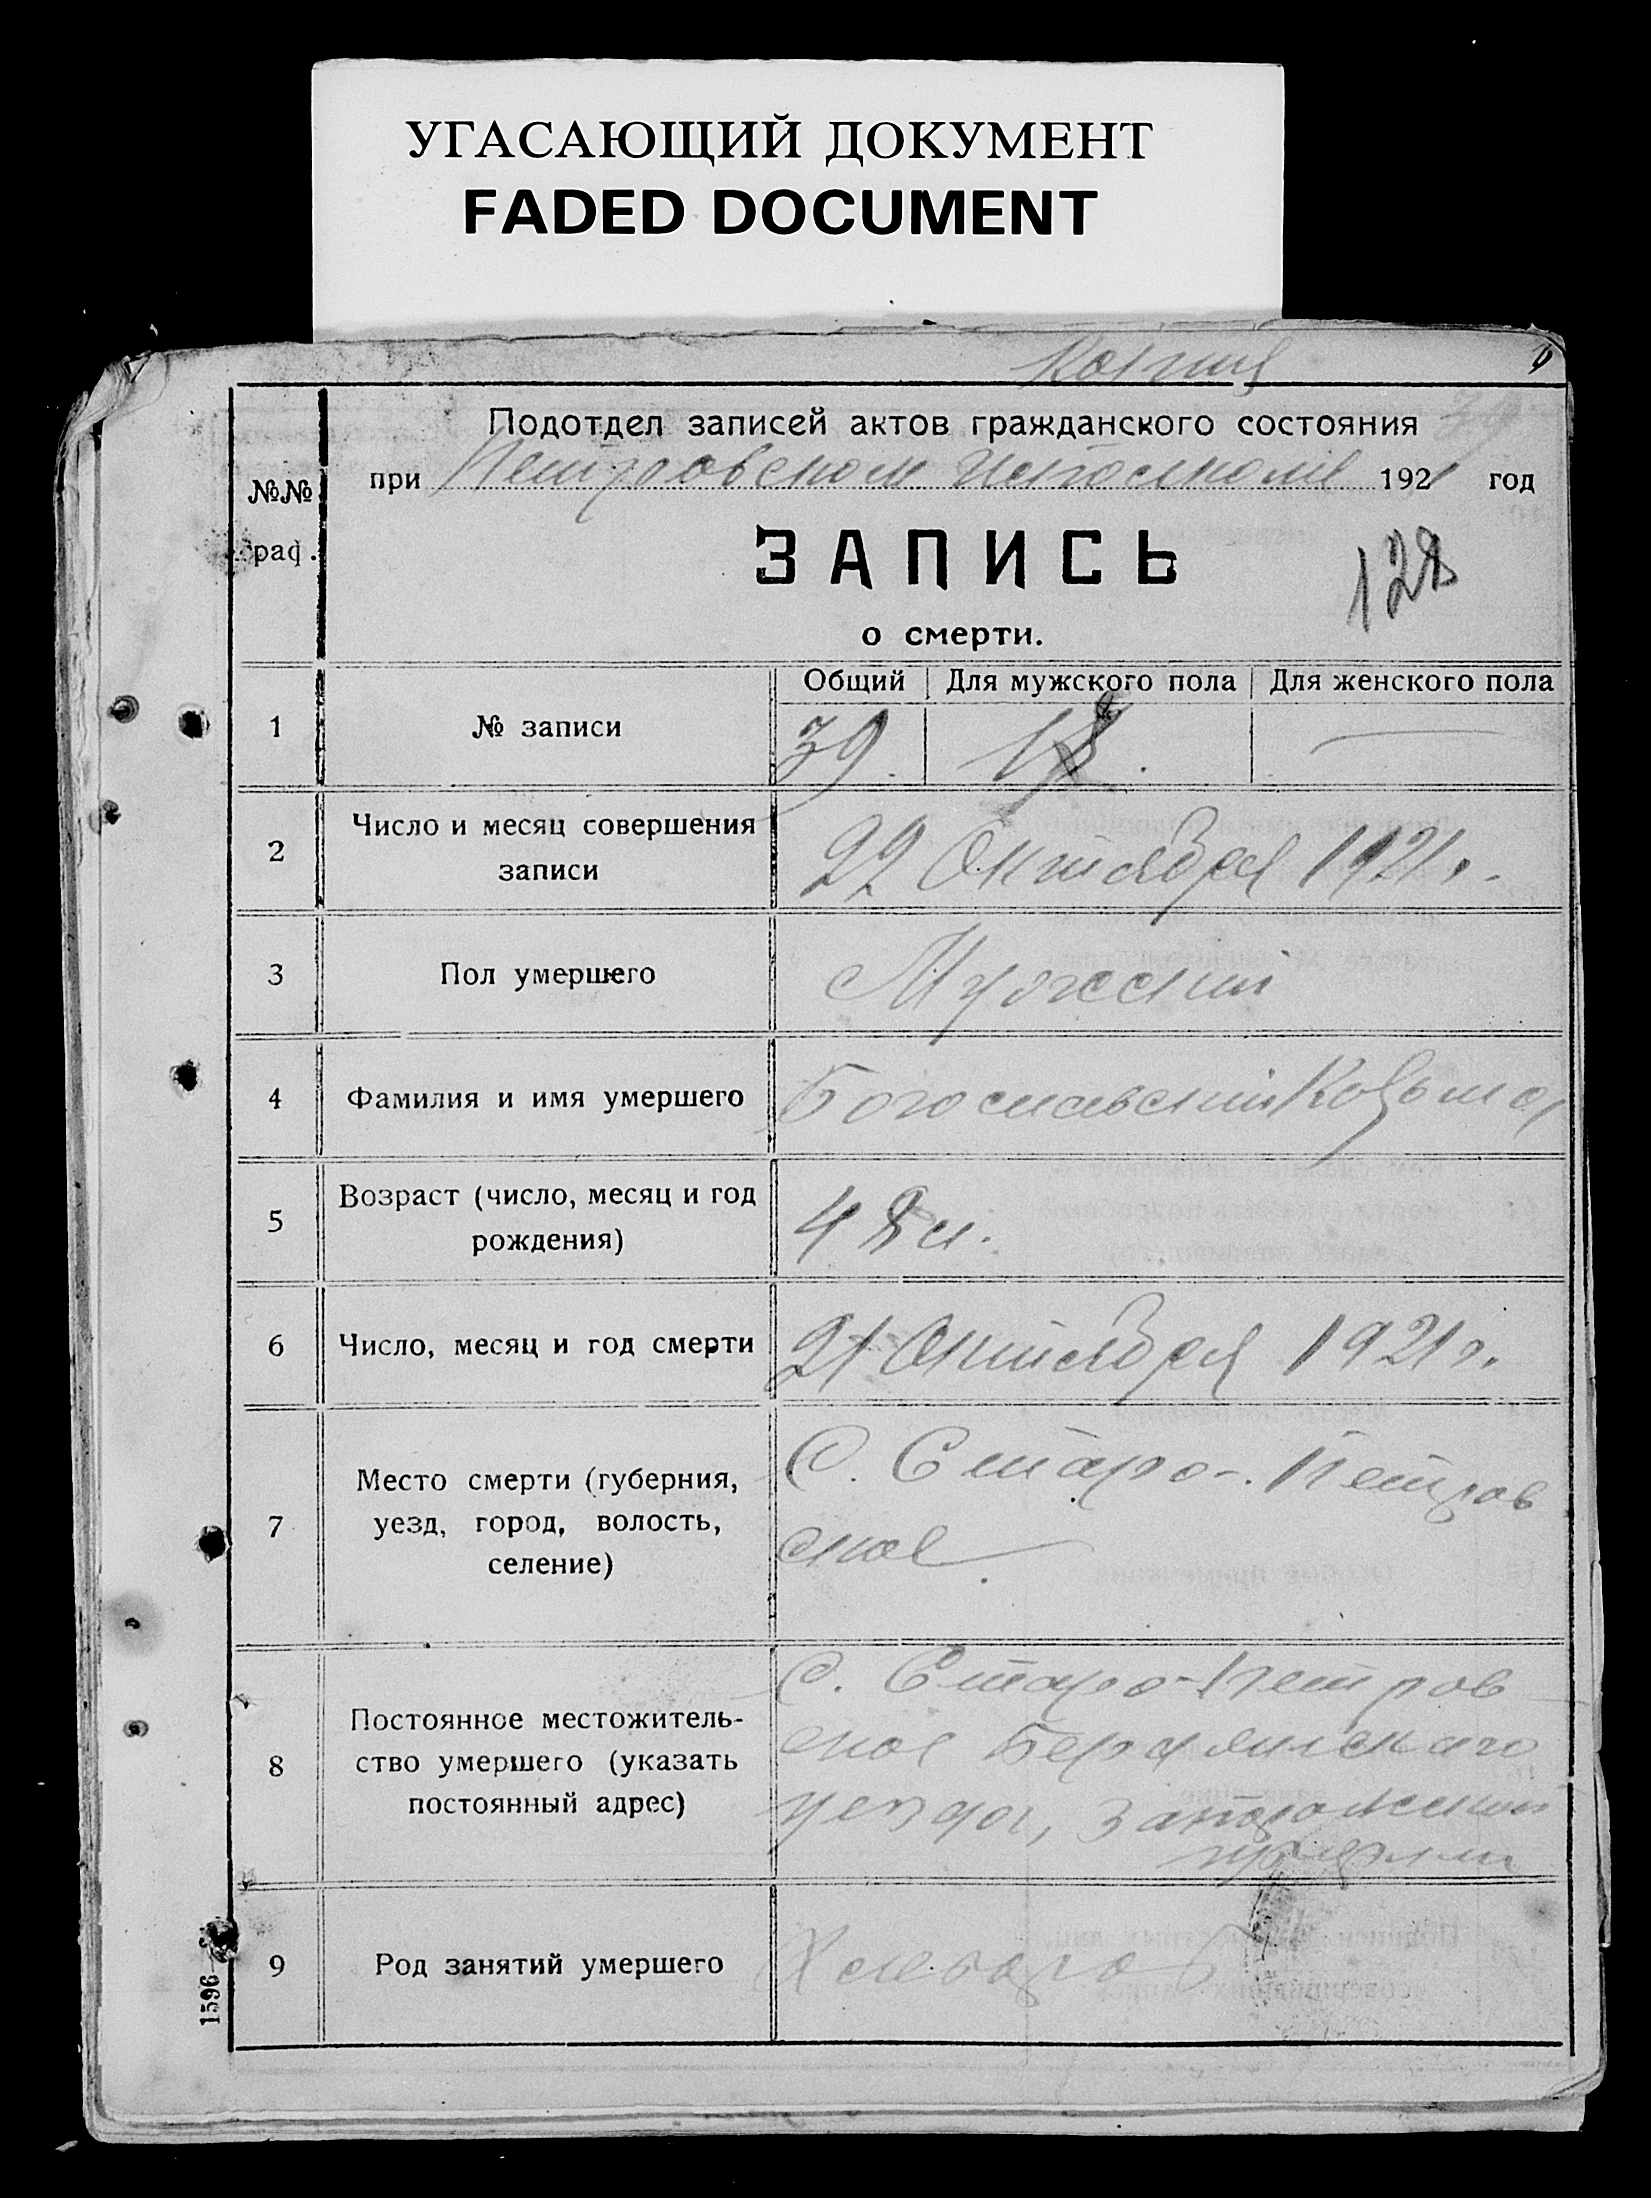 УГАСАЮЩИЙ ДОКУМЕНТ
FADED DOCUMENT
Копия
Подотдел записей актов гражданского состояния
при Петровском исполкоме 1921 год
№№
раф.
ЗАПИСЬ
128
о смерти.
Общий Для мужского пола Для женского пола
1 № записи 39. 18.
2 Число и месяц совершения
записи
22 Октября 1921 г.
3 Пол умершего Мужской
4 Фамилия и имя умершего Богославский Козьма
5 Возраст (число, месяц и год
рождения)
48 л.
6 Число, месяц и год смерти 21 Октября 1921 г.
7 Место смерти (губерния,
уезд, город, волость,
селение)
С. Старо-Петров
ское
8 Постоянное местожитель-
ство умершего (указать
постоянный адрес)
С. Старо-Петров
ское Бердянскаго
уезда,
9 Род занятий умершего Хлебороб
1596